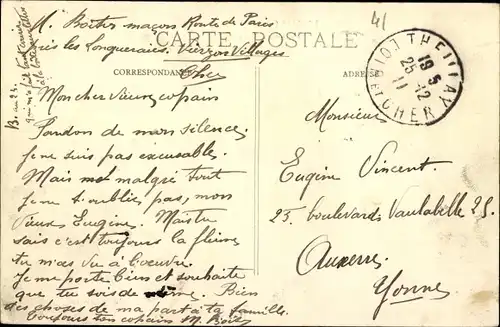 M. Boitier maçon Route de Paris
près les Longueraies, Vierzon Villages
Cher
CARTE POSTALE
CORRESPONDANCE
ADRESSE
THEILLAY
19 5
25-12
11
LOIR-ET-CHER
Mon cher vieux copain
Pardon de mon silence.
Je ne suis pas excusable.
Mais malgré tout
je ne t'oublie pas, mon
vieux Eugène. Mais tu
sais c'est toujours la flème
tu m'as vu à l'oeuvre.
Je me porte bien et souhaite
que tu sois de même. Bien
des choses de ma part à ta famille.
Toujours ton copain M. Boitier
Monsieur
Eugène Vincent.
25, boulevard Vaulabelle 25.
Auxerre.
Yonne
41